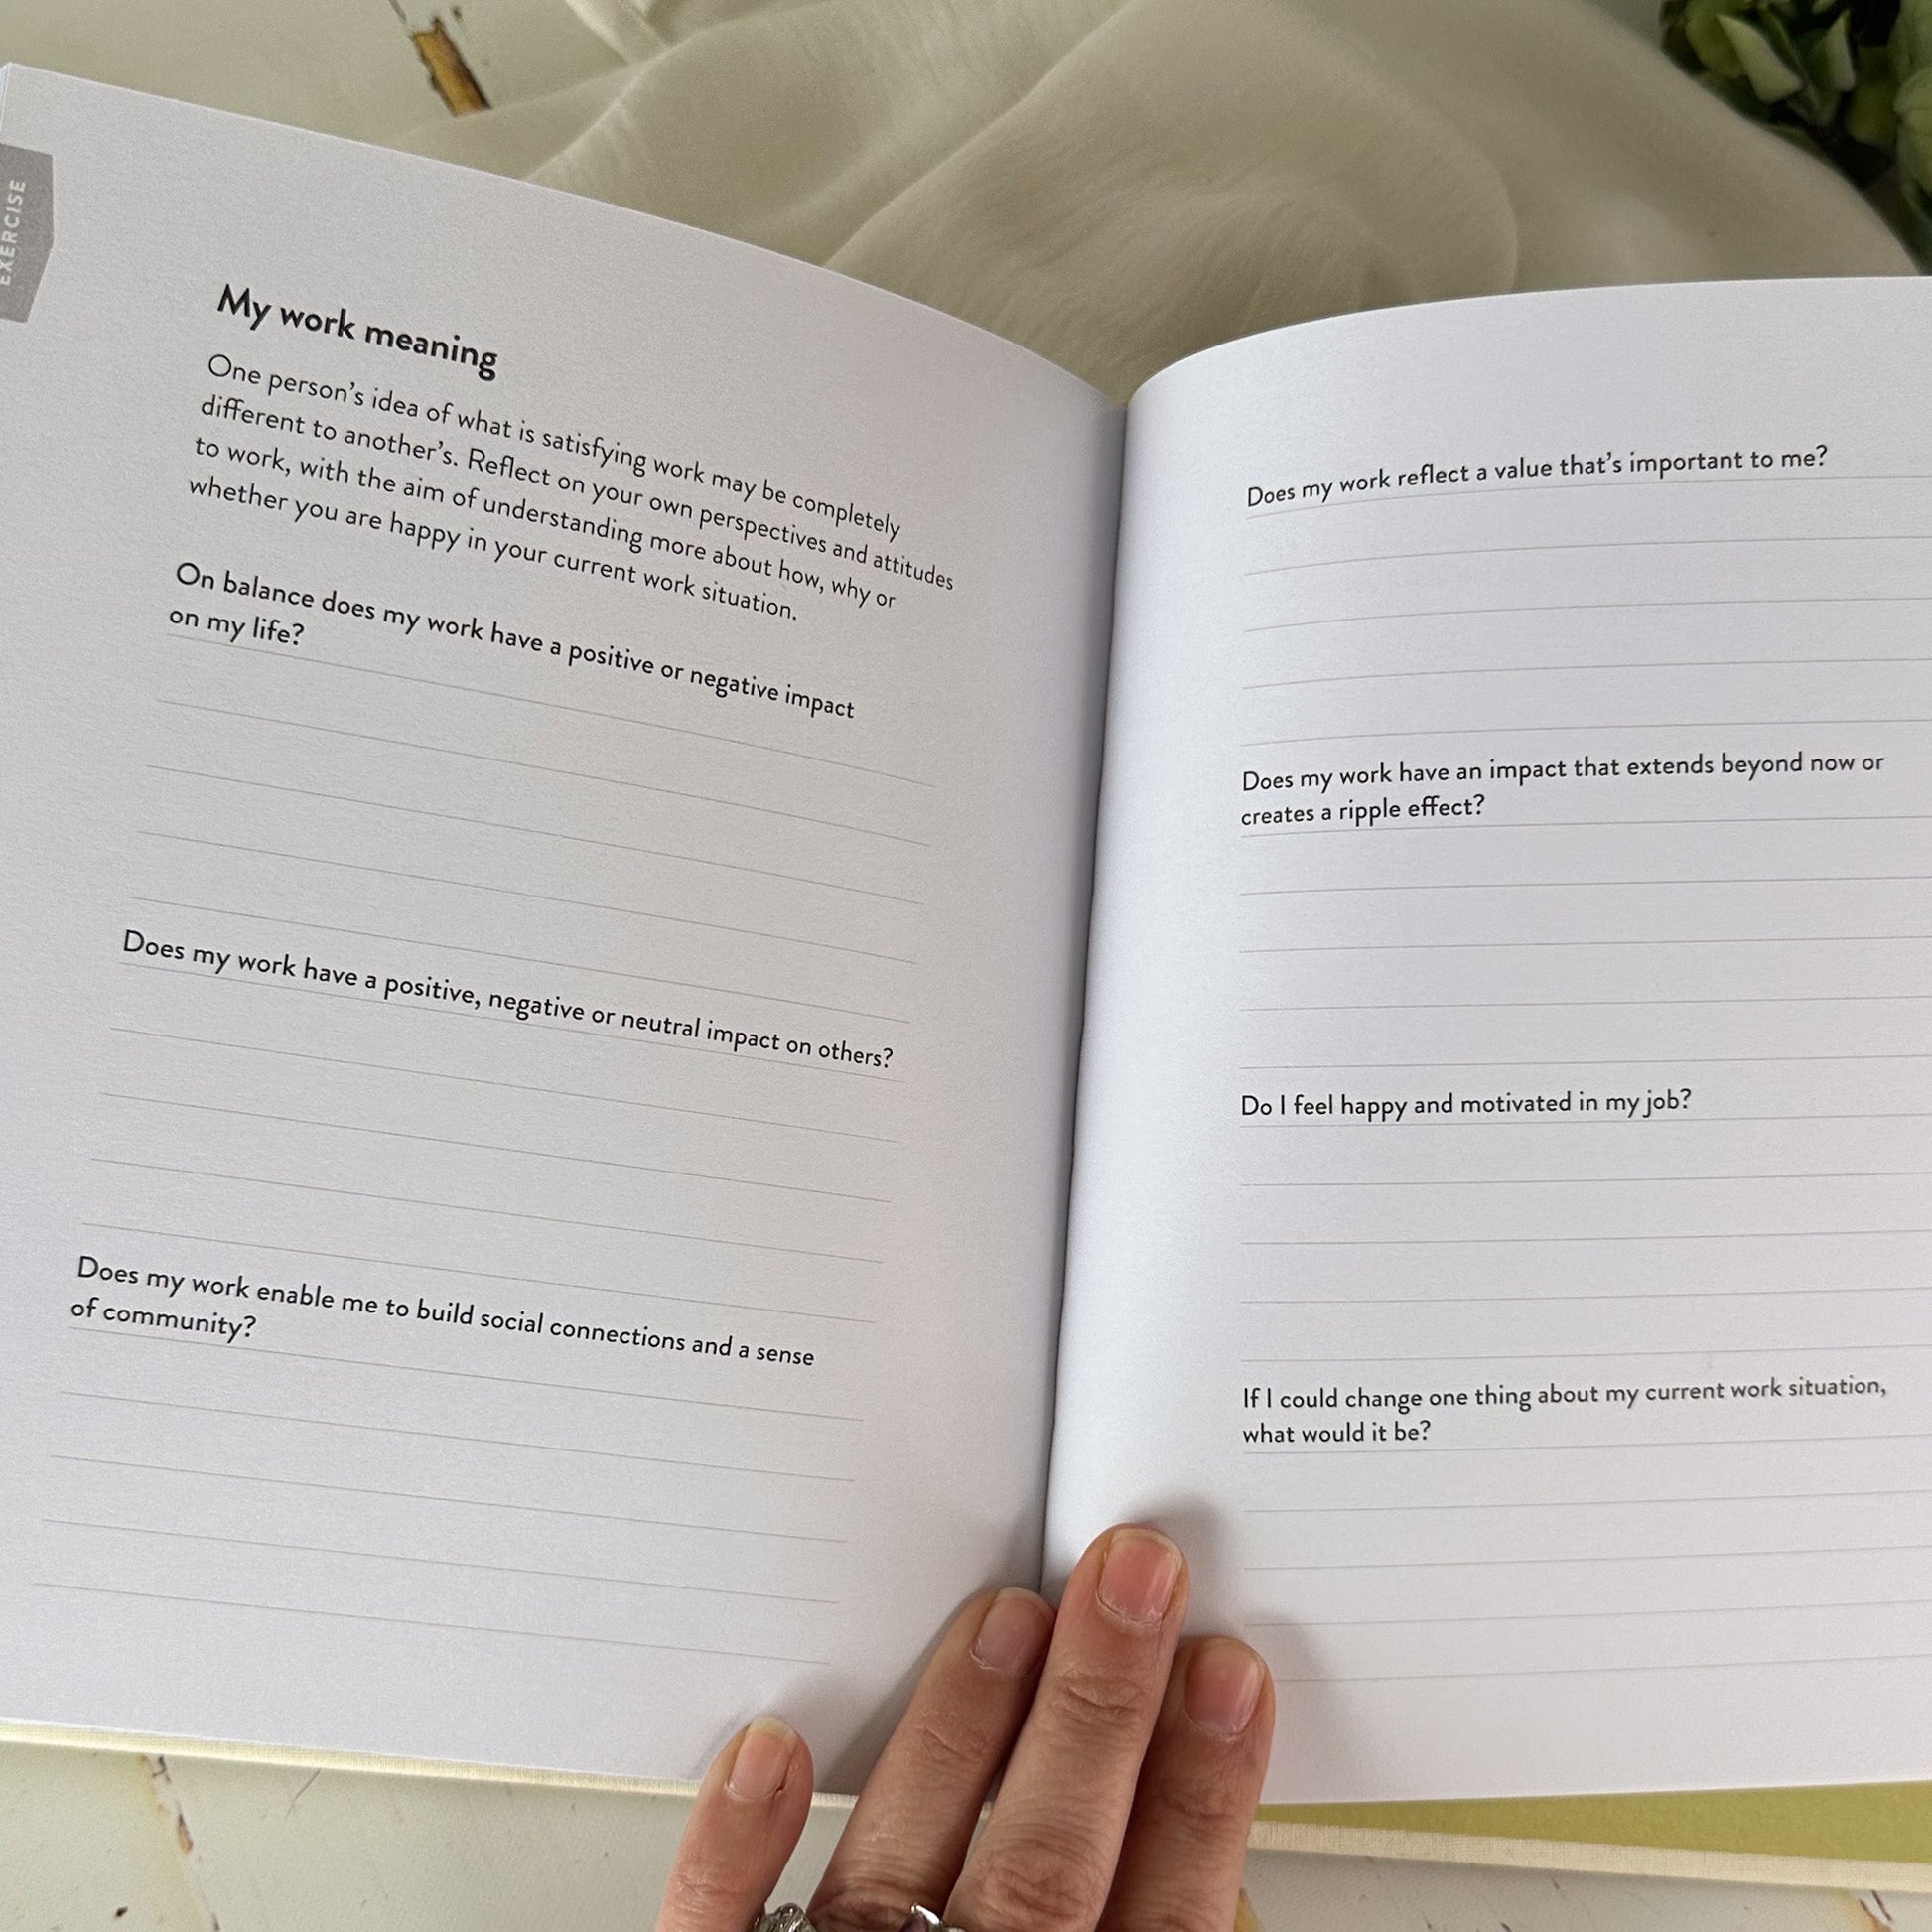 EXERCISE
My work meaning
One person's idea of what is satisfying work may be completely
different to another's. Reflect on your own perspectives and attitudes
to work, with the aim of understanding more about how, why or
whether you are happy in your current work situation.
On balance does my work have a positive or negative impact
on my life?
Does my work have a positive, negative or neutral impact on others?
Does my work enable me to build social connections and a sense
of community?
Does my work reflect a value that's important to me?
Does my work have an impact that extends beyond now or
creates a ripple effect?
Do I feel happy and motivated in my job?
If I could change one thing about my current work situation,
what would it be?